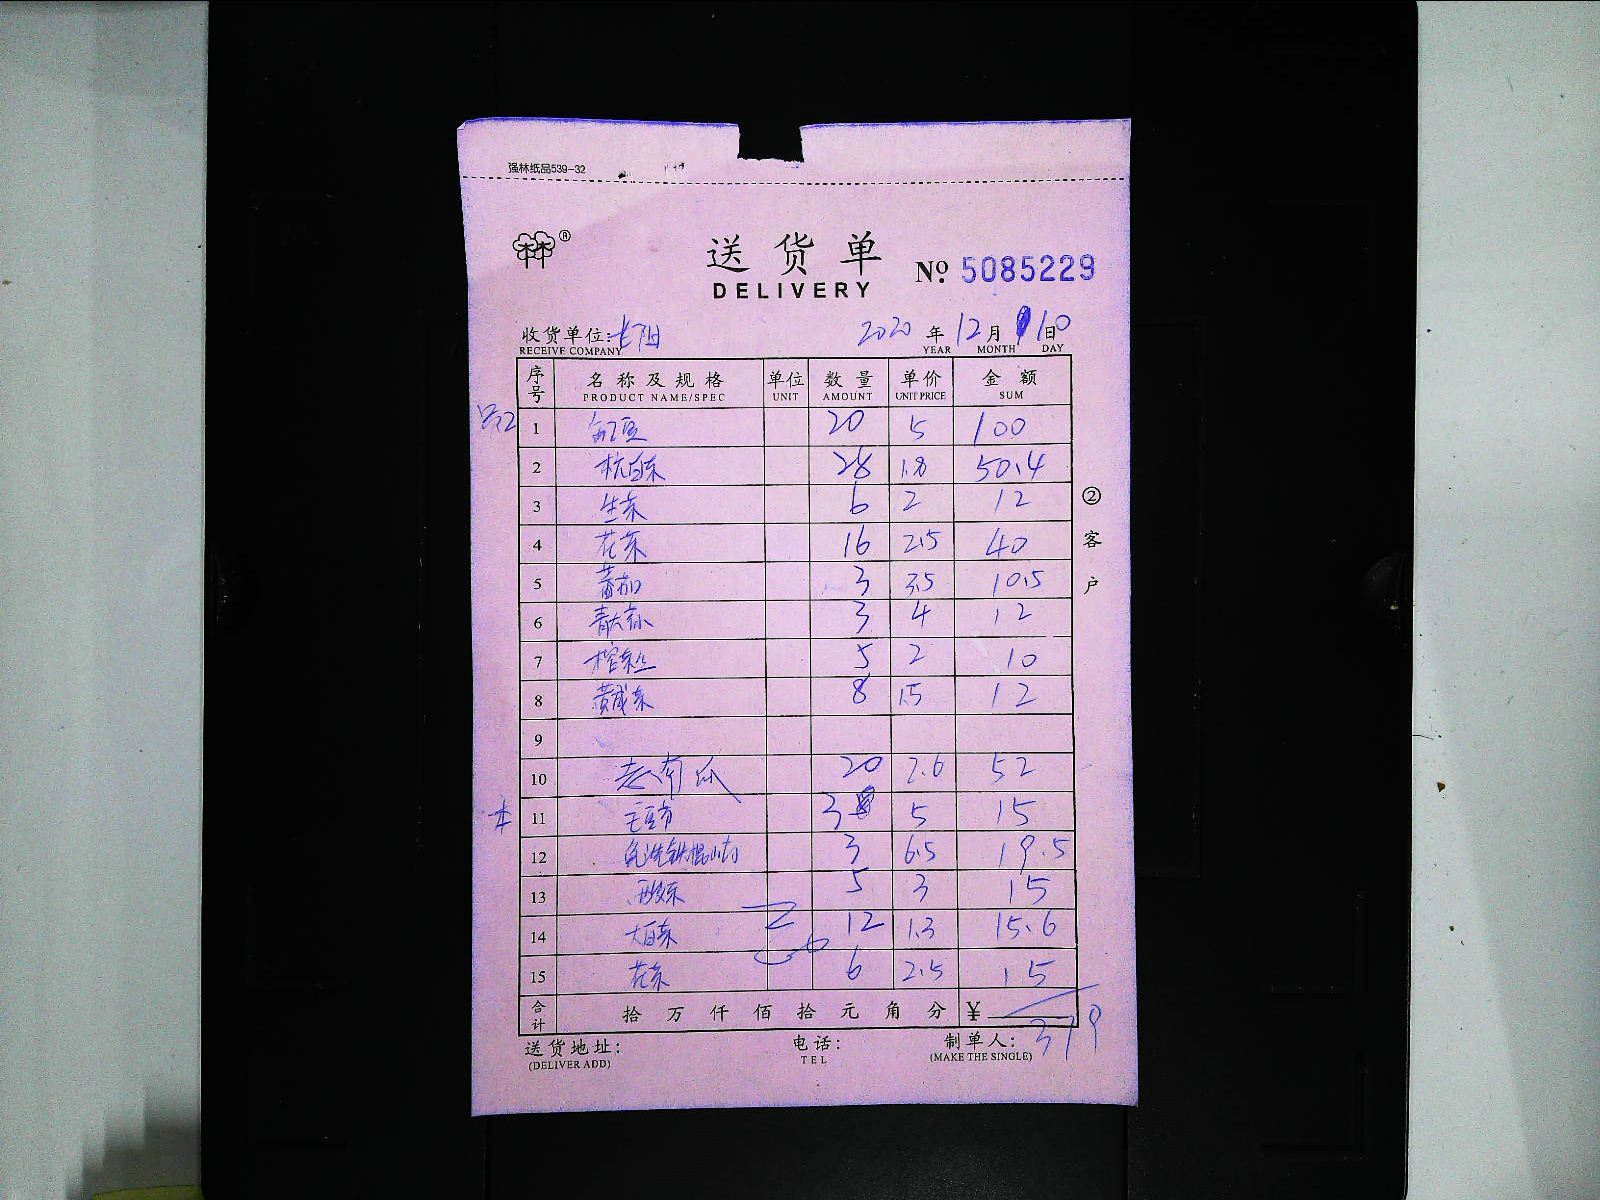 强林纸品539-32
送货单
DELIVERY
№ 5085229
收货单位: 2020 年 12 月 10 日
RECEIVE COMPANY YEAR MONTH DAY
序号 名称及规格 单位 数量 单价 金额
PRODUCT NAME/SPEC UNIT AMOUNT UNIT PRICE SUM
1 豇豆 20 5 100
2 杭白菜 28 1.8 50.4
3 生菜 6 2 12
4 花菜 16 2.5 40
5 蕃茄 3 3.5 10.5
6 3 4 12
7 榨菜丝 5 2 10
8 咸菜 8 1.5 12
9
10 老南瓜 20 2.6 52
11 毛豆节 3 5 15
12 免洗铁棍山药 3 6.5 19.5
13 5 3 15
14 大白菜 12 1.3 15.6
15 花菜 6 2.5 15
合计 拾 万 仟 佰 拾 元 角 分 ¥ 379
送货地址: 电话: 制单人:
(DELIVER ADD) TEL (MAKE THE SINGLE)
② 客户